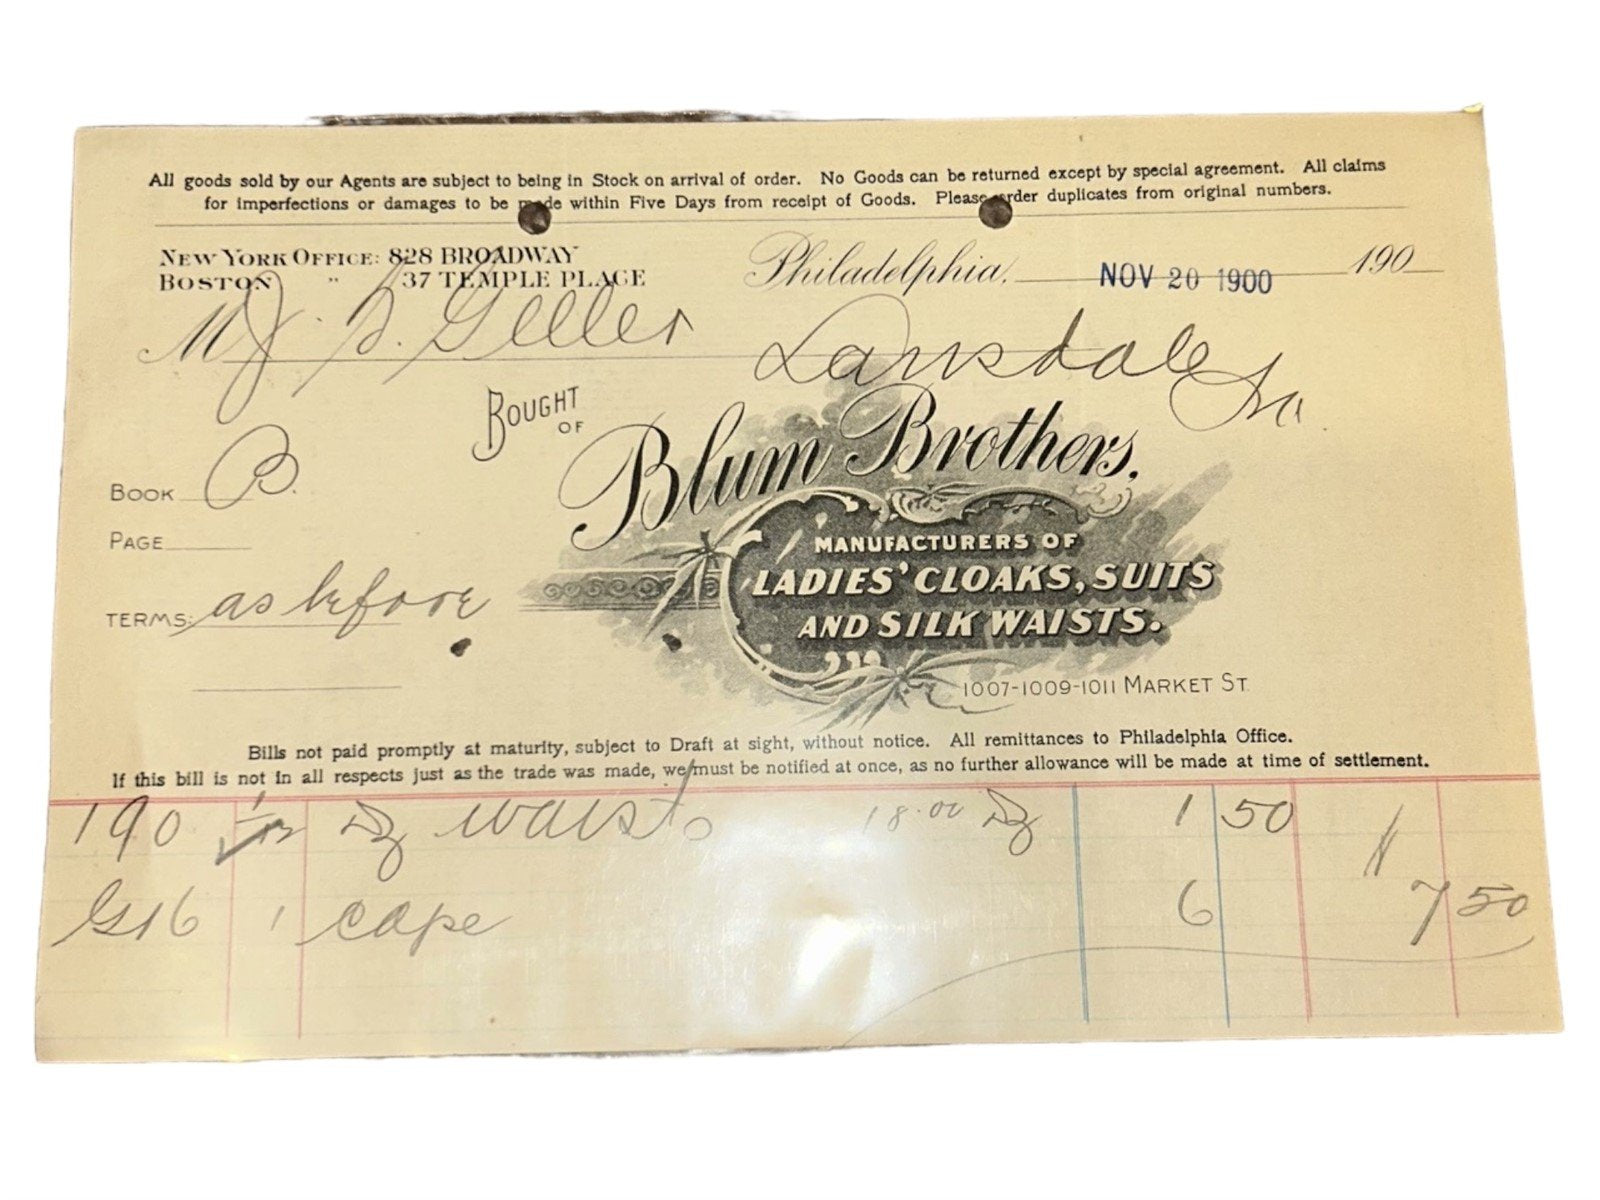 All goods sold by our Agents are subject to being in Stock on arrival of order. No Goods can be returned except by special agreement. All claims
for imperfections or damages to be made within Five Days from receipt of Goods. Please order duplicates from original numbers.
NEW YORK OFFICE: 828 BROADWAY
BOSTON " 37 TEMPLE PLACE
Philadelphia, NOV 20 1900 190
M J. S. Geller Lansdale Pa.
BOUGHT OF
Blum Brothers.
BOOK B.
PAGE
MANUFACTURERS OF
LADIES' CLOAKS, SUITS
AND SILK WAISTS.
TERMS: as before
1007-1009-1011 MARKET ST.
Bills not paid promptly at maturity, subject to Draft at sight, without notice. All remittances to Philadelphia Office.
If this bill is not in all respects just as the trade was made, we must be notified at once, as no further allowance will be made at time of settlement.
190 1/12 Dz waists 18.00 Dz 1 50
G16 1 cape 6 7 50